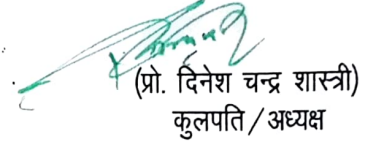 (प्रो. दिनेश चन्द्र शास्त्री)
कुलपति / अध्यक्ष